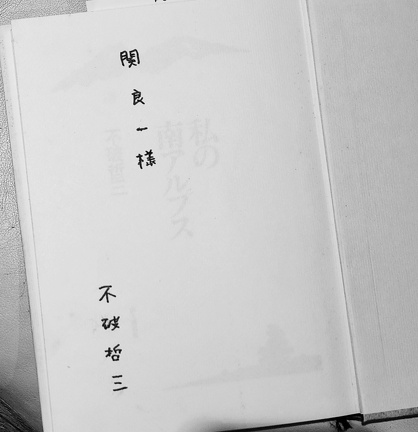 関良一様
不破哲三
私の
南アルプス
不破哲三